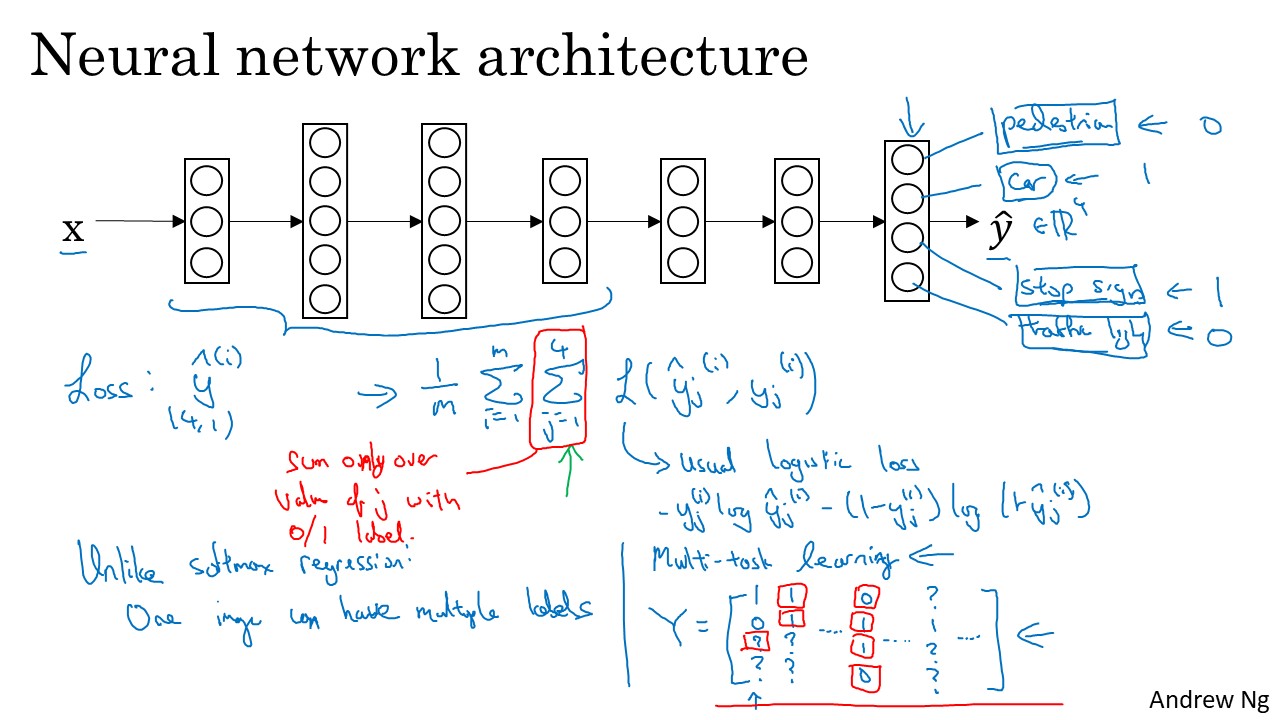 Neural network architecture
pedestrian ← 0
car ← 1
x
ŷ ∈ ℝ⁴
stop sign ← 1
traffic light ← 0
Loss: ŷ^(i) → 1/m ∑_{i=1}^{m} ∑_{j=1}^{4} ℒ(ŷ_j^(i), y_j^(i))
(4,1)
Sum only over
value of j with
0/1 label.
→ usual logistic loss
- y_j^(i) log ŷ_j^(i) - (1-y_j^(i)) log (1-ŷ_j^(i))
Unlike softmax regression:
One image can have multiple labels
Multi-task learning ←
1 1 0 ?
Y = 0 1 .... 1 .... 1 .... ←
? ? 1 ?
? ? 0 ?
Andrew Ng